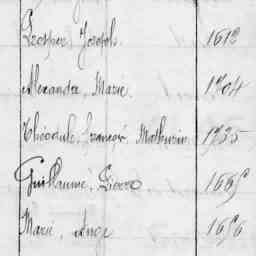 Prosper, Joseph. 1612
Alexandre, Marie. 1704
Théodule, François, Mathurin 1725
Guillaume, Pierre 1669
Marie, Ange 1656